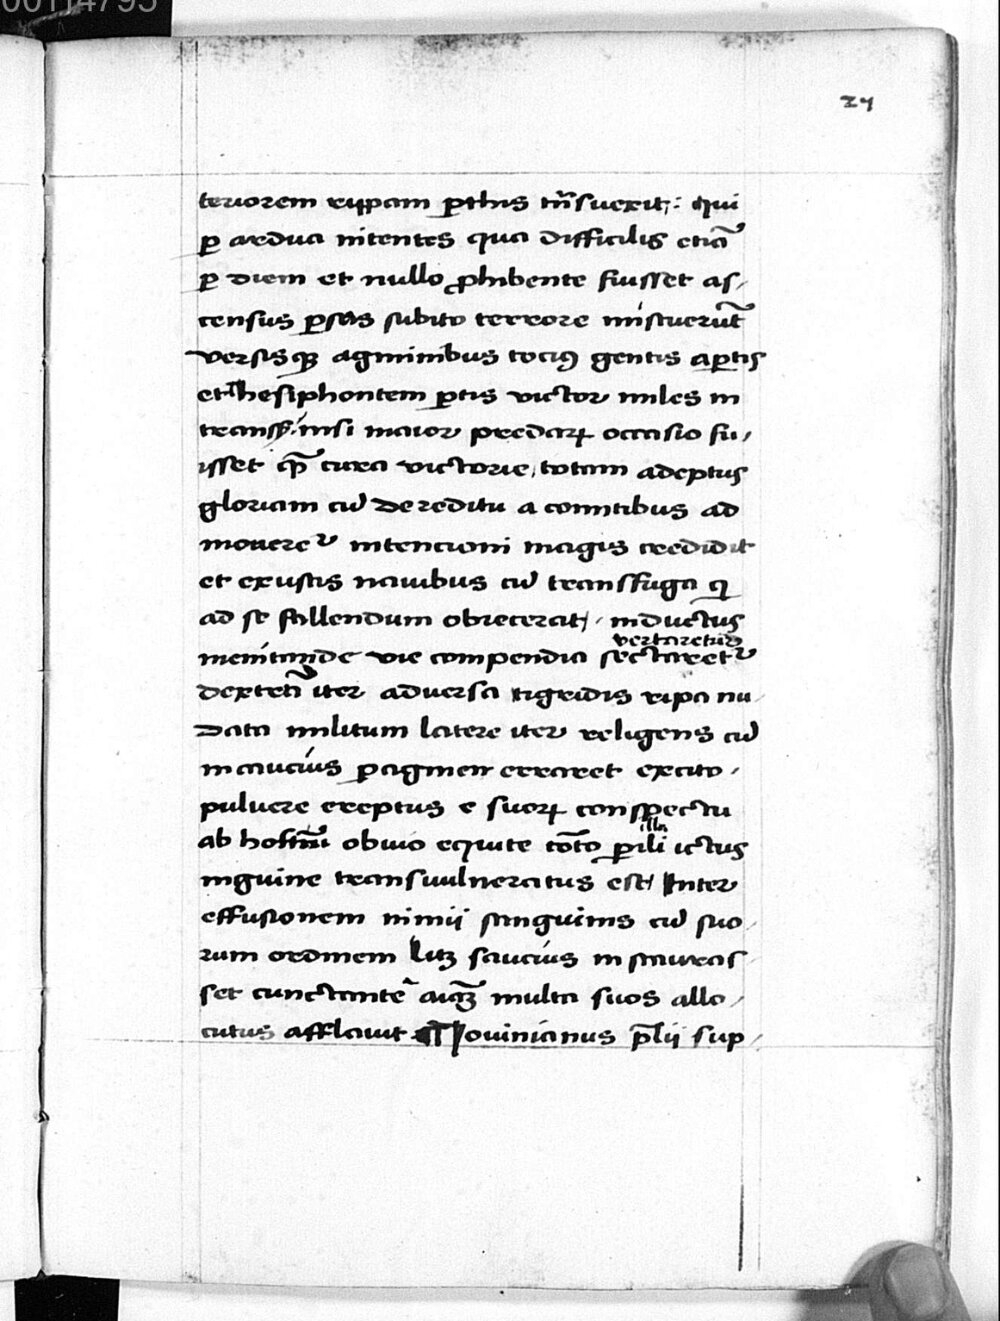 00114795
24
teriorem rippam ꝑthis trãsuexit: qui
ꝑ ardua nitentes qua difficilis etiã
ꝑ diem et nullo ꝓhibente fuisset as,
census ꝑsas subito terrore miscuerũt
versisqꝫ agminibus tociꝰ gentis aꝑtis
et thesiphontem ꝑtis victor miles in
transsꝫ. nisi maior predaꝝ occasio fu,
isset qꝫ̃ cura victorie, totam adeptus
gloriam cũ de reditu a comitibus ad
moueret᷑ intencioni magis credidit
et exustis nauibus cũ transfuga qͥ
ad se fallendum obiecerat, inductus
vertaretur
menitande vie compendia sectaret᷑
dextrũ iter aduersa tigridis ripa nu,
data militum latere iter religens cũ
incaucius ꝑ agmen erraret excito,
puluere ereptus e suoꝝ conspectu
illa
ab hostiũ obuio equite cõto ꝑ ili ictus
inguine transuulneratus est, Inter
effusionem nimii sanguinis cũ suo,
rum ordinem Licꝫ saucius instauras,
set cunctantẽ aiaꝫ̃ multa suos allo,
cutus afflauit ¶ Iouinianus p̃lii sup,